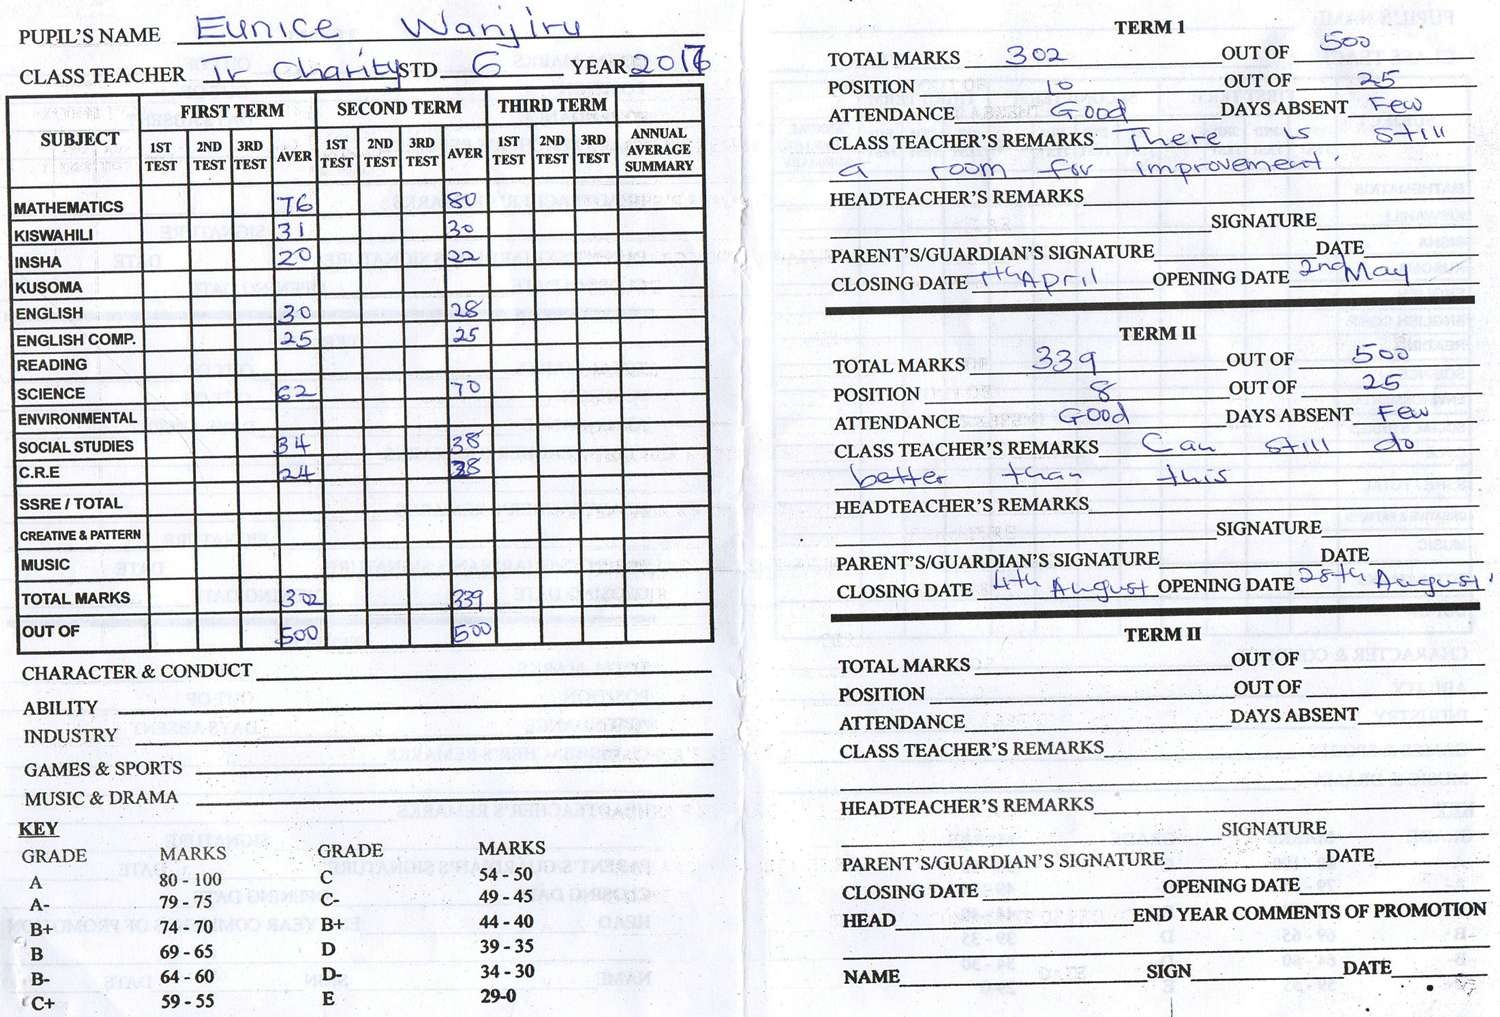 PUPIL'S NAME Eunice Wanjiru
CLASS TEACHER Tr Charity STD 6 YEAR 2017
SUBJECT FIRST TERM SECOND TERM THIRD TERM
1ST TEST 2ND TEST 3RD TEST AVER 1ST TEST 2ND TEST 3RD TEST AVER 1ST TEST 2ND TEST 3RD TEST ANNUAL AVERAGE SUMMARY
MATHEMATICS 76 80
KISWAHILI 31 30
INSHA 20 22
KUSOMA
ENGLISH 30 28
ENGLISH COMP. 25 25
READING
SCIENCE 62 70
ENVIRONMENTAL
SOCIAL STUDIES 34 38
C.R.E 24 28
SSRE / TOTAL
CREATIVE & PATTERN
MUSIC
TOTAL MARKS 302 339
OUT OF 500 500
CHARACTER & CONDUCT
ABILITY
INDUSTRY
GAMES & SPORTS
MUSIC & DRAMA
KEY
GRADE MARKS GRADE MARKS
A 80 - 100 C 54 - 50
A- 79 - 75 C- 49 - 45
B+ 74 - 70 B+ 44 - 40
B 69 - 65 D 39 - 35
B- 64 - 60 D- 34 - 30
C+ 59 - 55 E 29-0
TERM 1
TOTAL MARKS 302 OUT OF 500
POSITION 10 OUT OF 25
ATTENDANCE Good DAYS ABSENT Few
CLASS TEACHER'S REMARKS There is still
a room for improvement.
HEADTEACHER'S REMARKS
SIGNATURE
PARENT'S/GUARDIAN'S SIGNATURE DATE
CLOSING DATE April OPENING DATE 2nd May
TERM II
TOTAL MARKS 339 OUT OF 500
POSITION 8 OUT OF 25
ATTENDANCE Good DAYS ABSENT Few
CLASS TEACHER'S REMARKS Can still do
better than this
HEADTEACHER'S REMARKS
SIGNATURE
PARENT'S/GUARDIAN'S SIGNATURE DATE
CLOSING DATE 4th August OPENING DATE 28th August.
TERM II
TOTAL MARKS OUT OF
POSITION OUT OF
ATTENDANCE DAYS ABSENT
CLASS TEACHER'S REMARKS
HEADTEACHER'S REMARKS
SIGNATURE
PARENT'S/GUARDIAN'S SIGNATURE DATE
CLOSING DATE OPENING DATE
HEAD END YEAR COMMENTS OF PROMOTION
NAME SIGN DATE